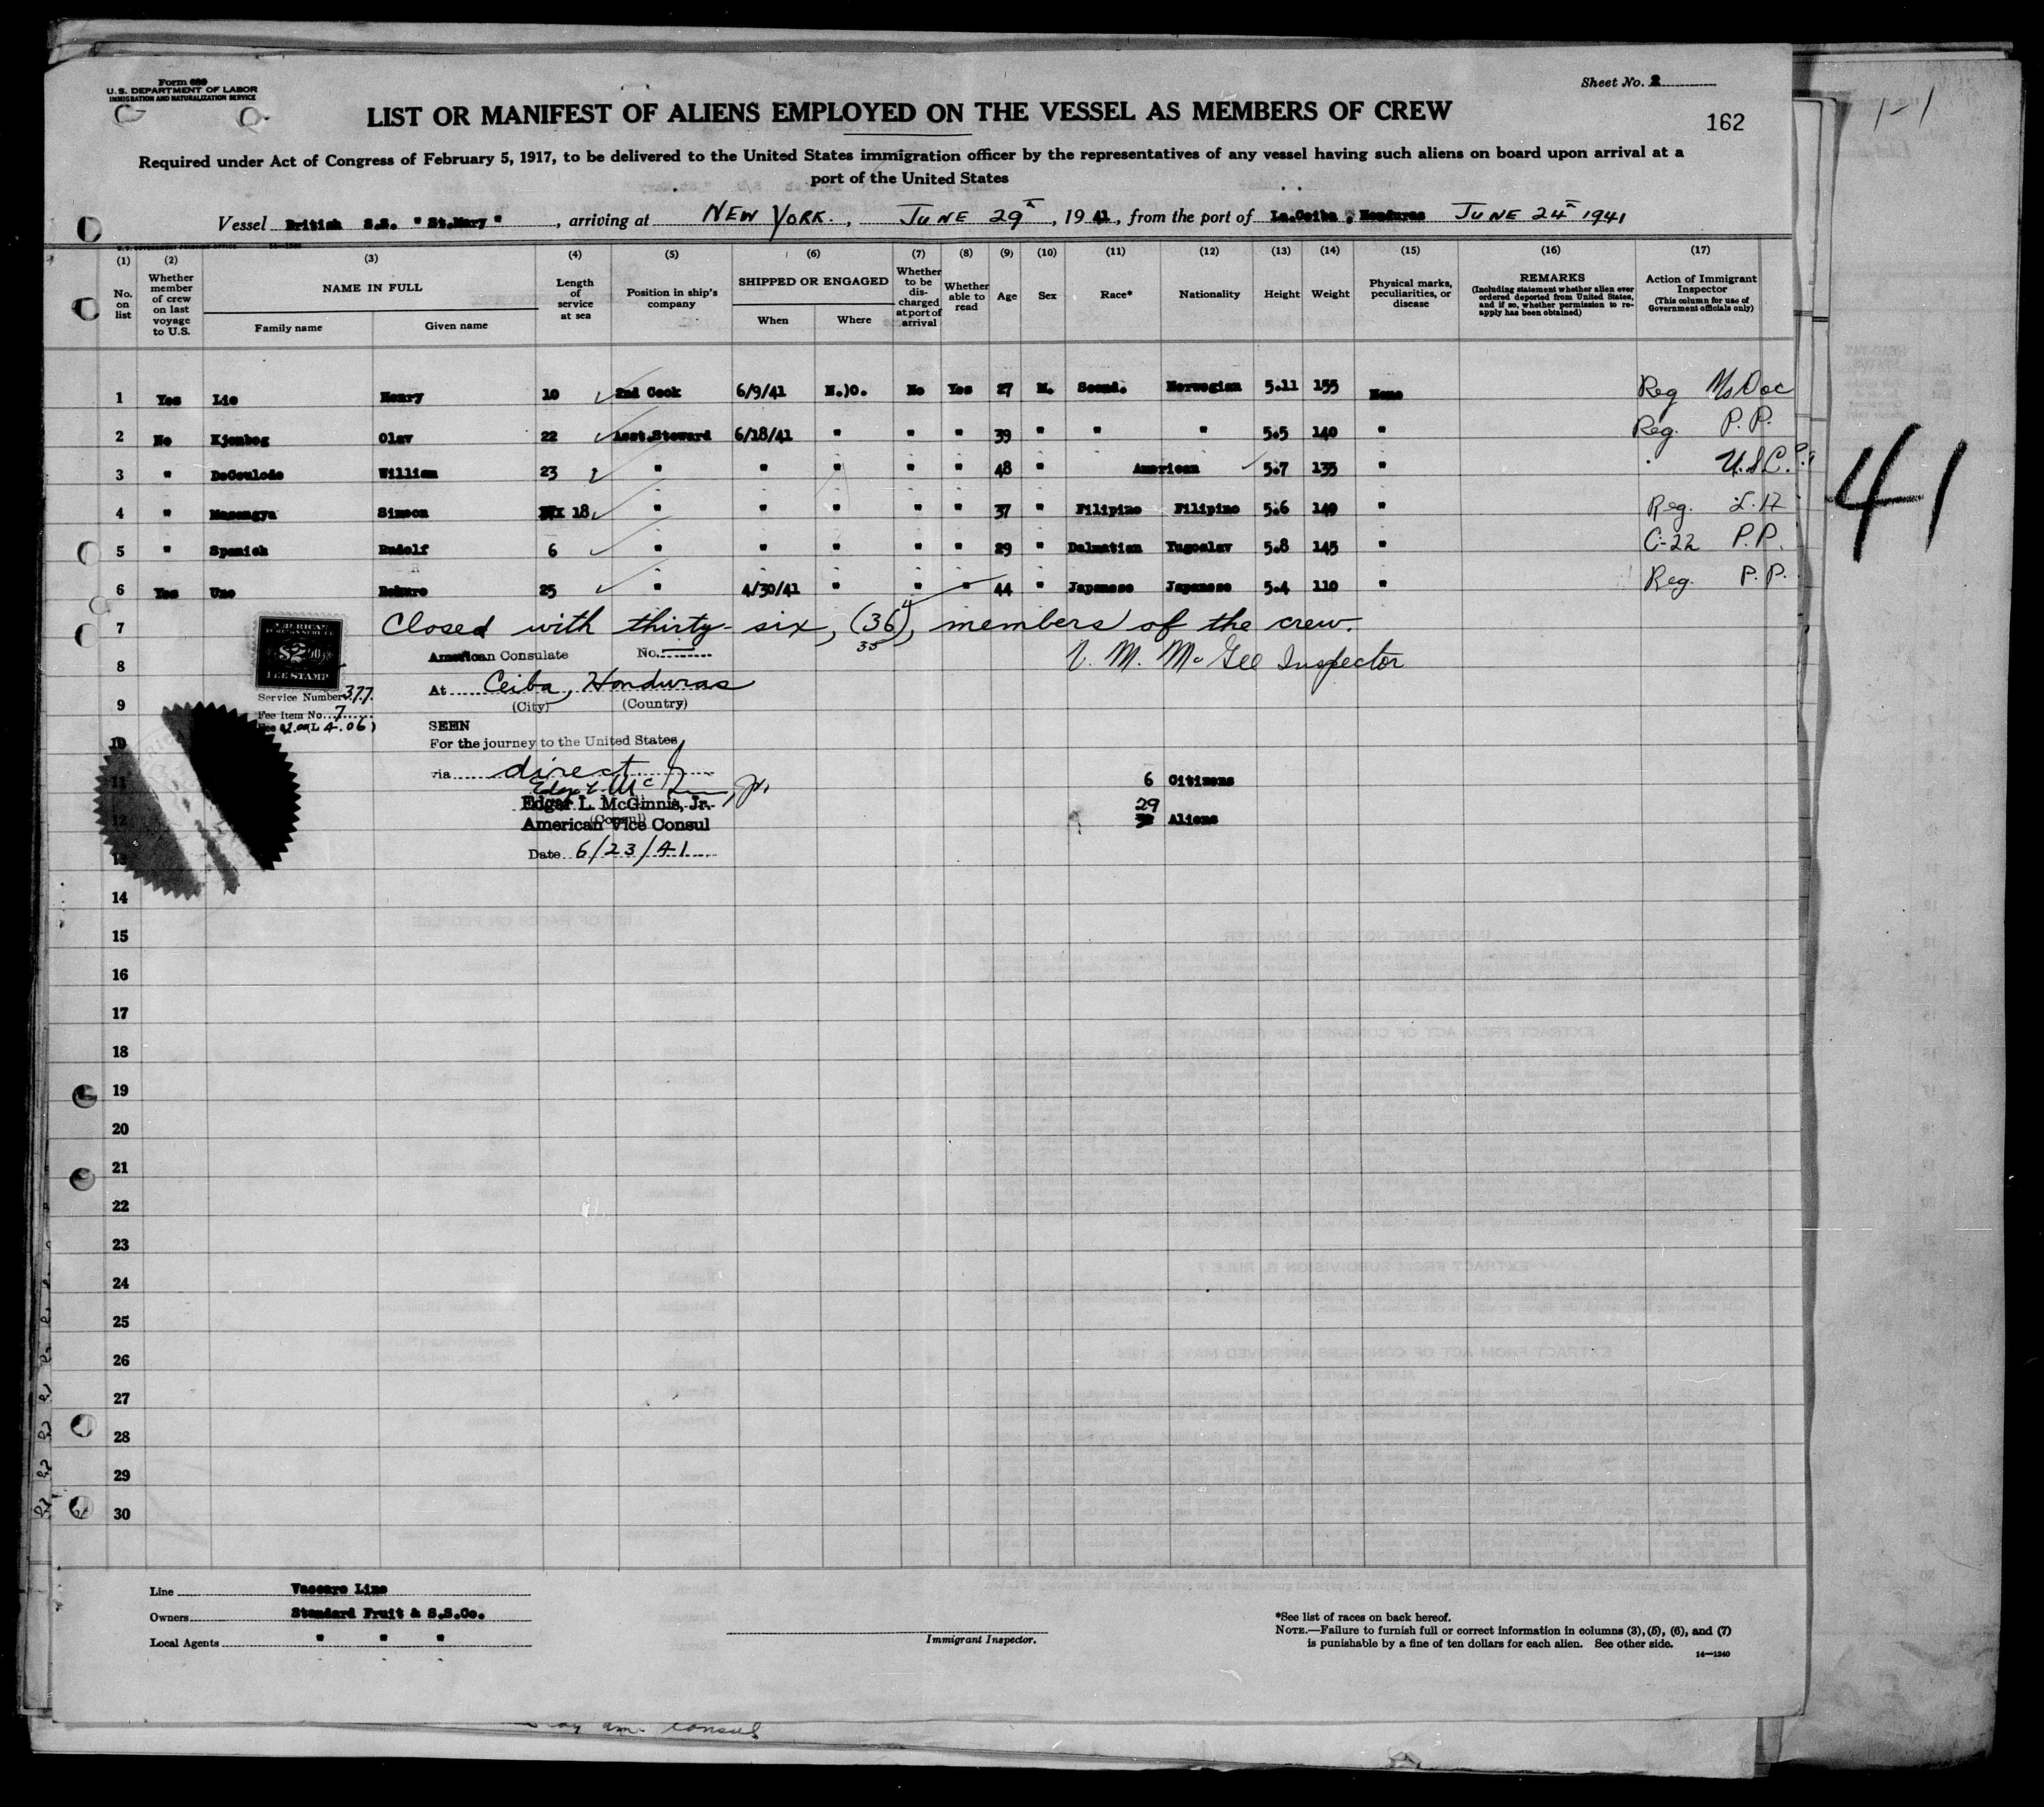 Form 680
U.S. DEPARTMENT OF LABOR
IMMIGRATION AND NATURALIZATION SERVICE
Sheet No. 2
LIST OR MANIFEST OF ALIENS EMPLOYED ON THE VESSEL AS MEMBERS OF CREW
162
Required under Act of Congress of February 5, 1917, to be delivered to the United States immigration officer by the representatives of any vessel having such aliens on board upon arrival at a
port of the United States
Vessel British S.S. "St.Mary", arriving at NEW YORK., JUNE 29th, 1941, from the port of La.Ceiba, Honduras JUNE 24th 1941
(1) (2) (3) (4) (5) (6) (7) (8) (9) (10) (11) (12) (13) (14) (15) (16) (17)
No. on list
Whether member of crew on last voyage to U.S.
NAME IN FULL
Family name Given name
Length of service at sea
Position in ship's company
SHIPPED OR ENGAGED
When Where
Whether to be discharged at port of arrival
Whether able to read
Age
Sex
Race*
Nationality
Height
Weight
Physical marks, peculiarities, or disease
REMARKS
(Including statement whether alien ever ordered deported from United States, and if so, whether permission to reapply has been obtained)
Action of Immigrant Inspector
(This column for use of Government officials only)
1 Yes Lie Henry 10 2nd Cook 6/9/41 N.)O. No Yes 27 M. Scand. Norwegian 5.11 155 None Reg No Doc
2 No Kjenbeg Olav 22 Asst.Steward 6/18/41 " " " 39 " " " 5.5 140 " Reg. P.P.
3 " DeCoulode William 23 " " " " " 48 " American 5.7 135 " U.S.C.
4 " Masongya Simeon 18 " " " " " 37 " Filipino Filipino 5.6 149 " Reg.
5 " Spanich Rudolf 6 " " " " " 29 " Dalmatian Yugoslav 5.8 145 " C-22 P.P.
6 Yes Uno Rokuro 25 " 4/30/41 " " " 44 " Japanese Japanese 5.4 110 " Reg. P.P.
7 Closed with thirty-six, (36), members of the crew.
35
V. M. McGee Inspector
AMERICAN
FOREIGN SERVICE
$2.00
FEE STAMP
8 American Consulate No.
At Ceiba, Honduras
(City) (Country)
Service Number 377.
Fee Item No. 7
9
SEEN
For the journey to the United States
10
via direct
11
6 Citizens
Edgar L. McGinnis, Jr.
(Consul)
American Vice Consul
12
29
Aliens
Date 6/23/41
13
14
15
16
17
18
19
20
21
22
23
24
25
26
27
28
29
30
Line Vaccaro Line
Owners Standard Fruit & S.S.Co.
Local Agents " " "
Immigrant Inspector.
*See list of races on back hereof.
NOTE.—Failure to furnish full or correct information in columns (3), (5), (6), and (7)
is punishable by a fine of ten dollars for each alien. See other side.
14—1240
41
1-1
consul